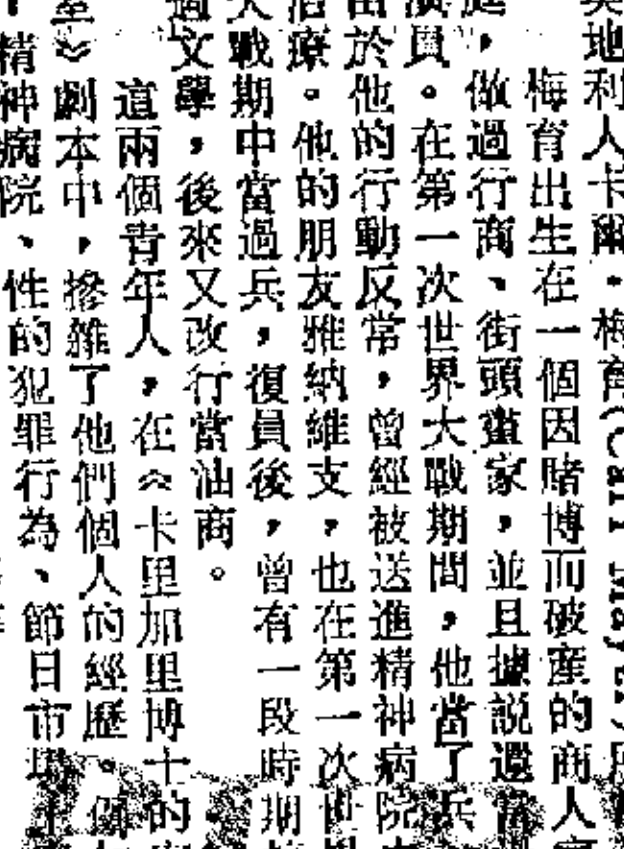 奧地利人卡爾·梅育(Carl Mayer)
梅育出生在一個因賭博而破產的商人
庭,做過行商、街頭畫家,並且據説還當
演員。在第一次世界大戰期間,他當了兵
由於他的行動反常,曾經被送進精神病院
治療。他的朋友雅納維支,也在第一次世
大戰期中當過兵,復員後,曾有一段時期
過文學,後來又改行當油商。
這兩個青年人,在《卡里加里博士的
室》劇本中,摻雜了他們個人的經歷。個
精神病院、性的犯罪行為、節日市場